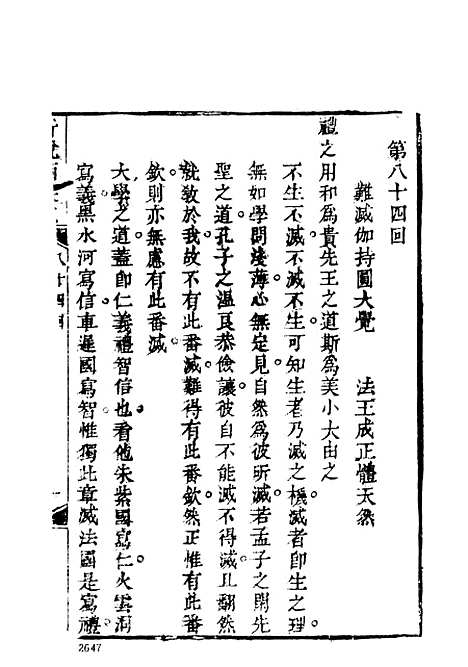 第八十四回
難滅伽持圓大覺　法王成正體天然
禮之用和為貴先王之道斯為美小大由之
不生不滅不滅不生可知生者乃滅之機滅者即生之理
無如學問淺薄心無定見自然為彼所滅若孟子之閑先
聖之道孔子之温良恭儉讓彼自不能滅不得滅且翻然
就教於我故不有此番滅難得有此番欽然正惟有此番
欽則亦無慮有此番滅
大學之道蓋即仁義禮智信也看他朱紫國寫仁火雲洞
寫義黑水河寫信車遲國寫智惟獨此章滅法國是寫禮
八十四回
2647